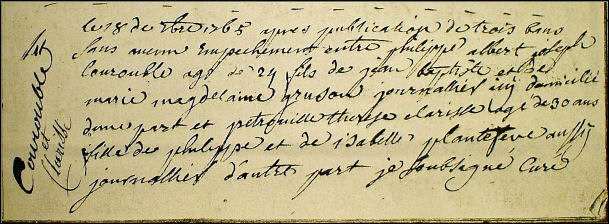 Courouble
et
Clarisse
le 18 de xbre 1765 apres publication de trois bans
sans aucun Empechement entre philippe albert joseph
Courouble agé de 24 fils de jean baptiste et de
marie magdelaine gruson journallier icy domicilié
dune part et petronille therese clarisse agé de 30 ans
fille de philippe et de isabelle plantefeve aussy
journallier d'autre part je soubsigné Curé